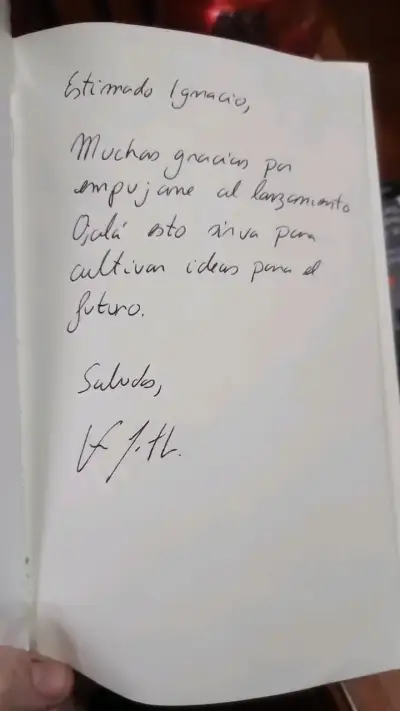 Estimado Ignacio,
Muchas gracias por
empujarme al lanzamiento
Ojalá esto sirva para
cultivar ideas para el
futuro.
Saludos,